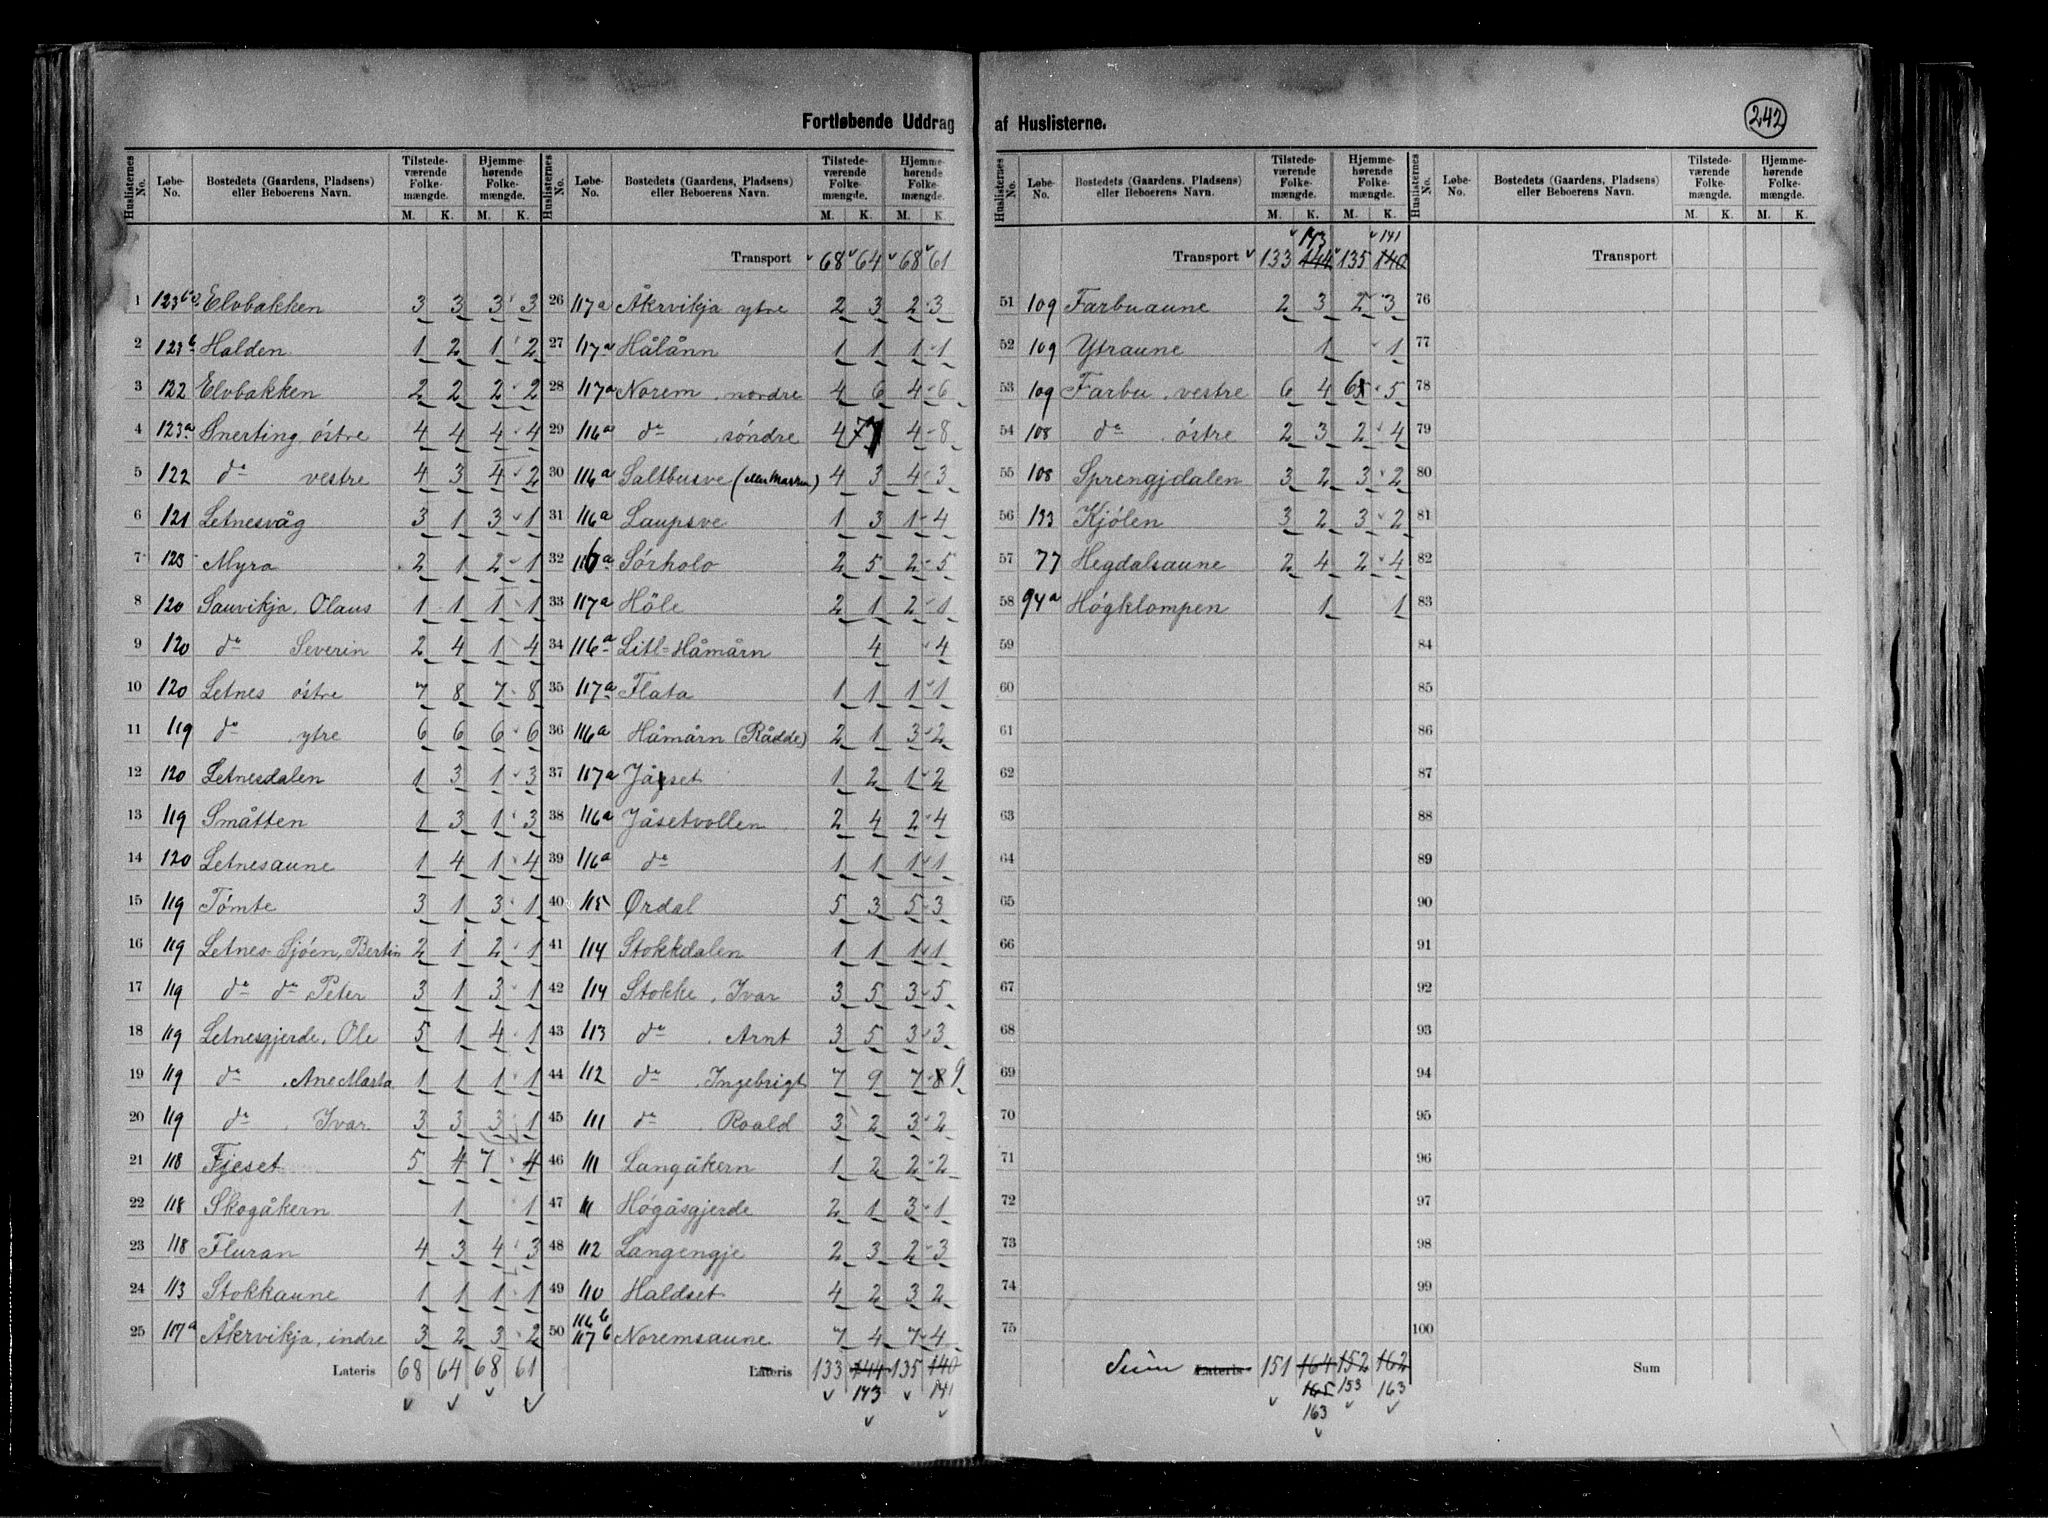 Fortløbende Uddrag af Huslisterne. 242
Huslisternes No. | Løbe-No. | Bostedets (Gaardens, Pladsens) eller Beboerens Navn. | Tilstedeværende Folkemængde. M. K. | Hjemmehørende Folkemængde. M. K.
1 123b Elvbakken 3 3 3 3
2 123b Halden 1 2 1 2
3 122 Elvbakken 2 2 2 2
4 123a Snerting, östre 4 4 4 4
5 122 do vestre 4 3 4 2
6 121 Letnesvåg 3 1 3 1
7 123 Myra 2 1 2 1
8 120 Sauvikja, Olaus 1 1 1 1
9 120 do Severin 2 4 1 4
10 120 Letnes östre 7 8 7 8
11 119 do ytre 6 6 6 6
12 120 Letnesdalen 1 3 1 3
13 119 Småtten 1 3 1 3
14 120 Letnesaune 1 4 1 4
15 119 Tömte 3 1 3 1
16 119 Letnes-Sjöen, Bertin 2 1 2 1
17 119 do do Peter 3 1 3 1
18 119 Letnesgjerde, Ole 5 1 4 1
19 119 do , Ane Marta 1 1 1 1
20 119 do , Ivar 3 3 3 1
21 118 Fjeset 5 4 7 4
22 118 Skogåkern 1 1
23 118 Fluran 4 3 4 3
24 113 Stokkaune 1 1 1 1
25 117a Åkrvikja, indre 3 2 3 2
Lateris 68 64 68 61
Huslisternes No. | Løbe-No. | Bostedets (Gaardens, Pladsens) eller Beboerens Navn. | Tilstedeværende Folkemængde. M. K. | Hjemmehørende Folkemængde. M. K.
Transport 68 64 68 61
26 117a Åkrvikja ytre 2 3 2 3
27 117a Hålånn 1 1 1 1
28 117a Norem, nordre 4 6 4 6
29 116a do , söndre 4 7 4 8
30 116a Saltbusve 4 3 4 3
31 116a Laupsve 1 3 1 4
32 116a Sörholo 2 5 2 5
33 117a Höle 2 1 2 1
34 116a Litl-Håmårn 4 4
35 117a Flata 1 1 1 1
36 116a Håmårn (Rådde) 2 1 3 2
37 117a Jåset 1 2 1 2
38 116a Jåsetvollen 2 4 2 4
39 116a do 1 1 1 1
40 115 Ørdal 5 3 5 3
41 114 Stokkdalen 1 1 1 1
42 114 Stokke, Ivar 3 5 3 5
43 113 do , Arnt 3 5 3 3
44 112 do , Ingebrigt 7 9 7 8 9
45 111 do , Roald 3 2 3 2
46 111 Langåkern 1 2 2 2
47 111 Högåsgjerde 2 1 3 1
48 112 Langengje 2 3 2 3
49 110 Haldset 4 2 3 2
50 116b 117b Noremsaune 7 4 7 4
Lateris 133 144 135 140
143 141
Huslisternes No. | Løbe-No. | Bostedets (Gaardens, Pladsens) eller Beboerens Navn. | Tilstedeværende Folkemængde. M. K. | Hjemmehørende Folkemængde. M. K.
143 141
Transport 133 144 135 140
51 109 Farbuaune 2 3 2 3
52 109 Ytraune 1 1
53 109 Farbu, vestre 6 4 6 5
54 108 do , östre 2 3 2 4
55 108 Sprengjdalen 3 2 3 2
56 133 Kjölen 3 2 3 2
57 77 Hegdalsaune 2 4 2 4
58 94a Högklompen 1 1
59
60
61
62
63
64
65
66
67
68
69
70
71
72
73
74
75
Sum Lateris 151 164 152 162
165 153 163
163
Huslisternes No. | Løbe-No. | Bostedets (Gaardens, Pladsens) eller Beboerens Navn. | Tilstedeværende Folkemængde. M. K. | Hjemmehørende Folkemængde. M. K.
Transport
76
77
78
79
80
81
82
83
84
85
86
87
88
89
90
91
92
93
94
95
96
97
98
99
100
Sum